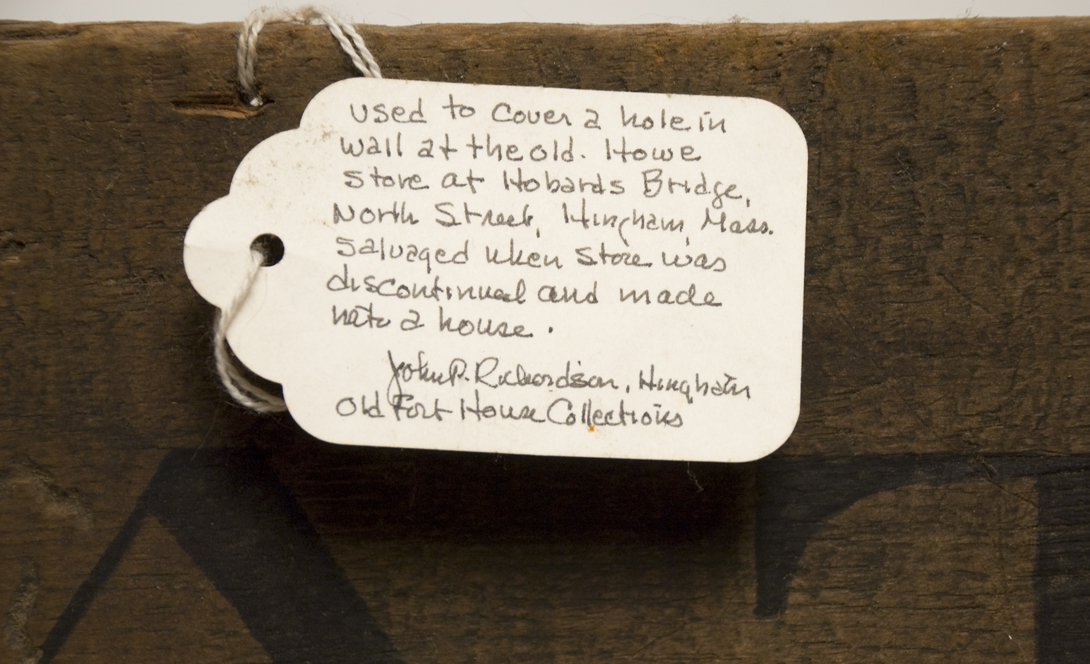 used to cover a hole in
wall at the old. Howe
store at Hobards Bridge,
North Street, Hingham, Mass.
salvaged when store was
discontinued and made
into a house.
John P. Richardson, Hingham
Old Fort House Collections
A T